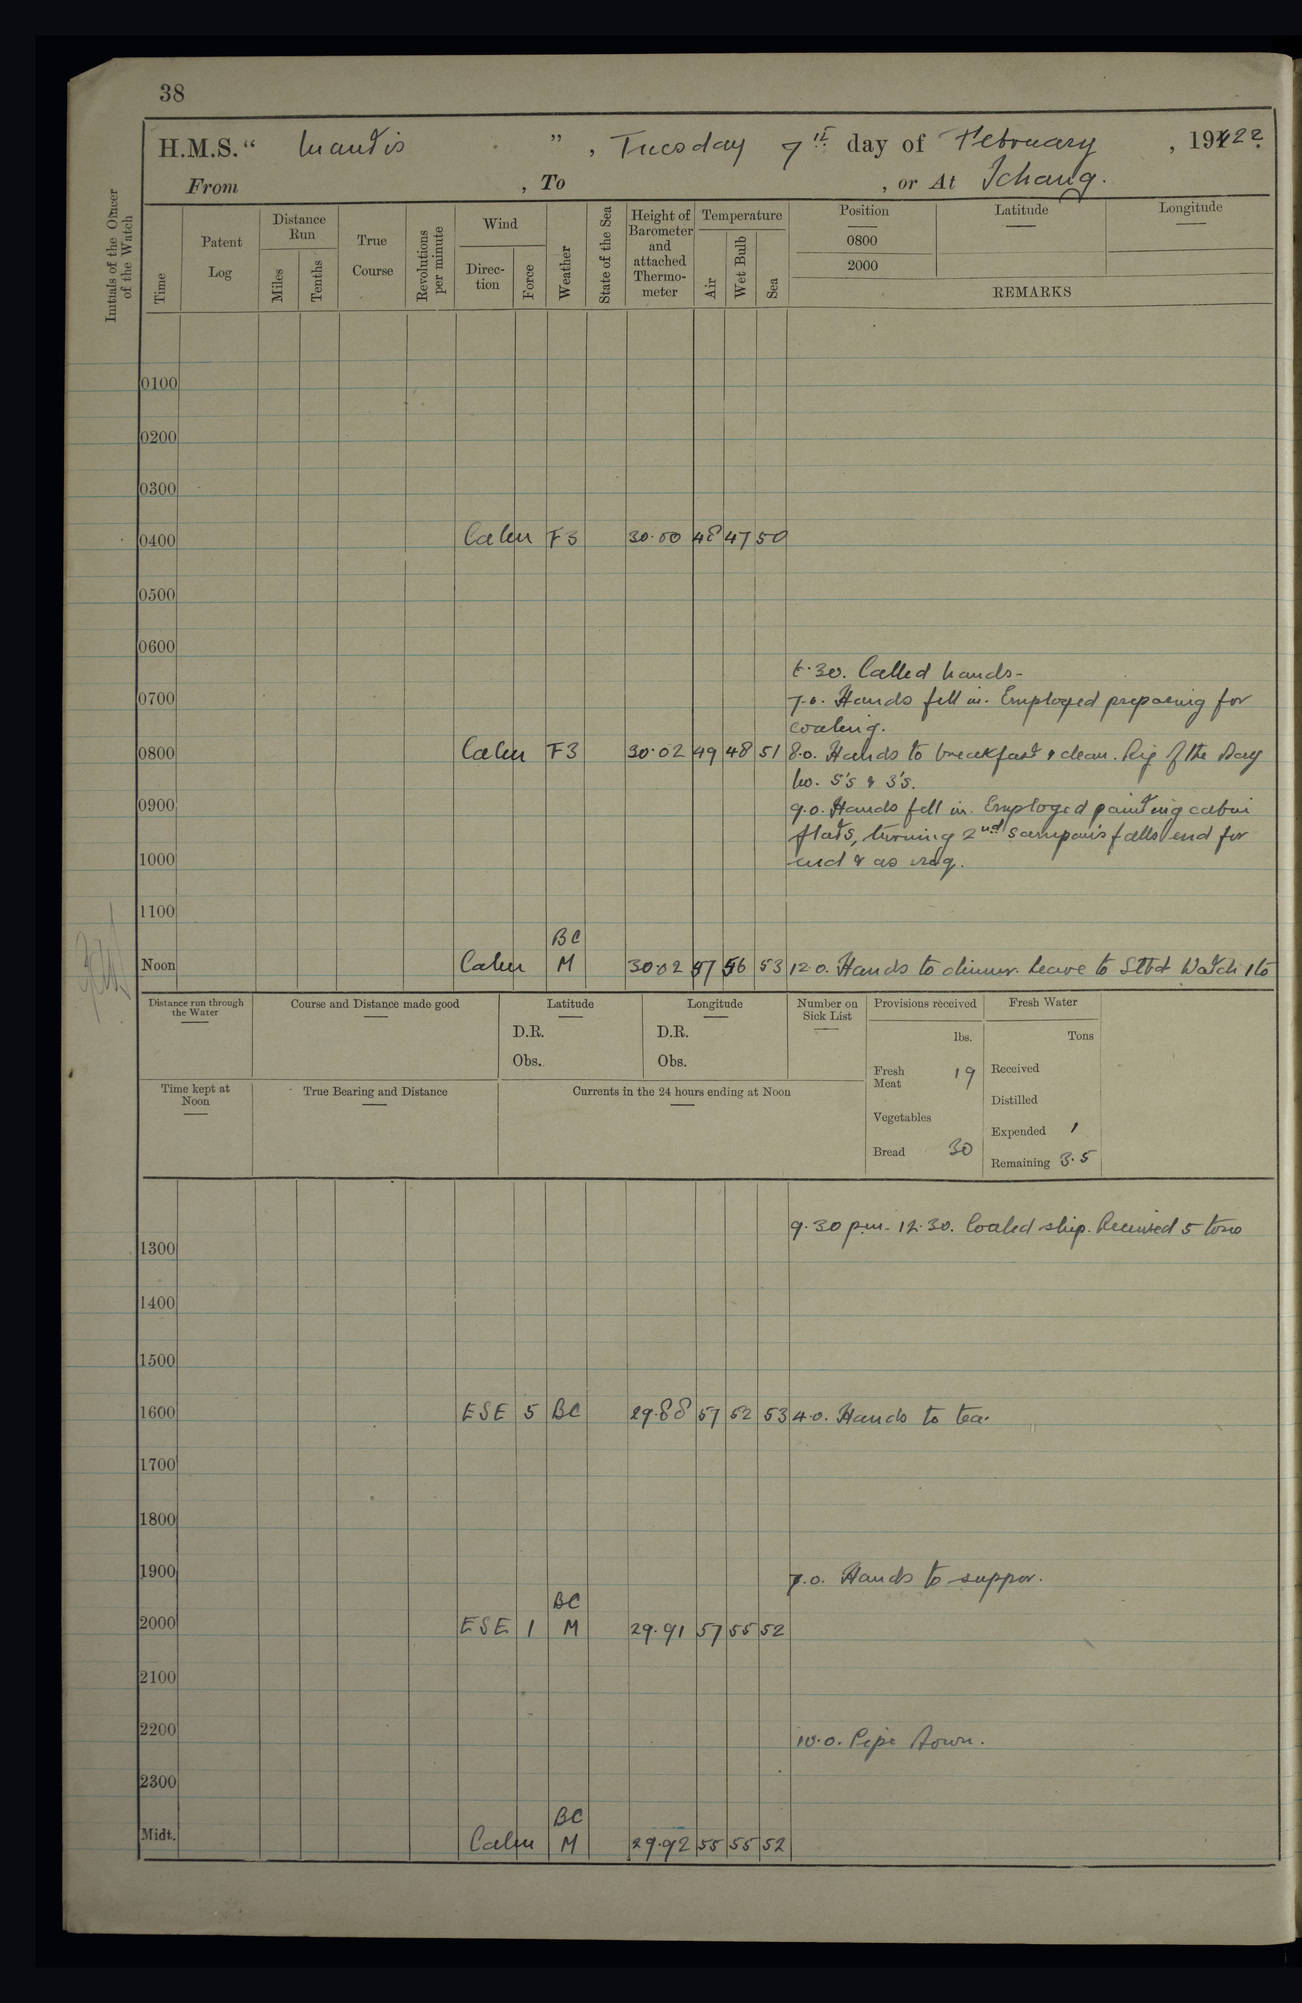 38
H.M.S. “ Mantis ” , Tuesday 7th day of February , 1922
From , To , or At Ichang.
Initials of the Officer of the Watch
Time
Patent Log
Distance Run
Miles
Tenths
True Course
Revolutions per minute
Wind
Direc-tion
Force
Weather
State of the Sea
Height of Barometer and attached Thermo-meter
Temperature
Air
Wet Bulb
Sea
Position
0800
2000
Latitude
Longitude
REMARKS
0100
0200
0300
0400 Calm F3 30.00 48 47 50
0500
0600
6.30. Called hands-
0700 7.0. Hands fell in. Employed preparing for
coaling.
0800 Calm F3 30.02 49 48 51 8.0. Hands to breakfast & clean. Rig of the Day
No. 5's & 3's.
0900 9.0. Hands fell in. Employed painting cabin
flats, turning 2nd sampan's falls end for
1000 end & as req.
1100
BC
Noon Calm M 30.02 57 56 53 12.0. Hands to dinner. Leave to Stbd Watch 1 to
Distance run through the Water
Course and Distance made good
Latitude
D.R.
Obs.
Longitude
D.R.
Obs.
Number on Sick List
Provisions received
lbs.
Fresh Meat 19
Vegetables
Bread 30
Fresh Water
Tons
Received
Distilled
Expended 1
Remaining 3.5
Time kept at Noon
True Bearing and Distance
Currents in the 24 hours ending at Noon
9.30 p.m. 12.30. Coaled ship. Received 5 tons
1300
1400
1500
1600 ESE 5 BC 29.88 57 52 53 4.0. Hands to tea.
1700
1800
1900 7.0. Hands to supper.
BC
2000 ESE 1 M 29.91 57 55 52
2100
2200 10.0. Pipe Down.
2300
BC
Midt. Calm M 29.92 55 55 52